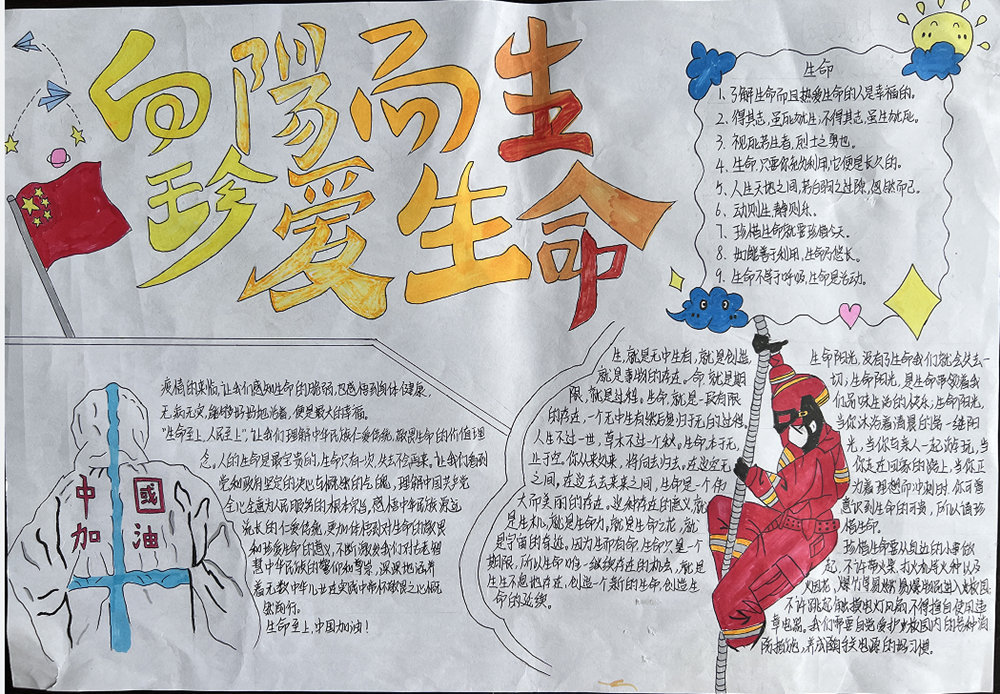 向陽而生
珍爱生命
生命
1、了解生命而且热爱生命的人是幸福的。
2、得其志,虽死犹生;不得其志,虽生犹死。
3、视死若生者,烈士之勇也。
4、生命,只要你充分利用,它便是长久的。
5、人生天地之间,若白驹之过隙,忽然而已。
6、动则生,静则乐。
7、珍惜生命就要珍惜今天。
8、如能善于利用,生命乃悠长。
9、生命不等于呼吸,生命是活动。
疫情的来临,让我们感知生命的脆弱,
无病无灾,能够好好地活着,便是最大的幸福。
"生命至上,人民至上",让我们理解中华民族仁爱传统,敬畏生命的价值理
念。人的生命是最宝贵的,生命只有一次,失去不会再来。让我们看到
党和政府坚定的决心与
全心全意为人民服务的根本宗旨。感悟中华民族源远
流长的仁爱传统,更加体悟到对生命的敬畏
和珍爱生命的意义,不断激发我们对
慧中华民族的
着无数中华儿女在实践中常怀敬畏之心
生命至上,中国加油!
中國
加油
生,就是无中生有,就是创造,
就是事物的存在。命,就是期
限,就是过程。生命,就是一段有限
的存在,一个无中生有然后复归于无的过程。
人生不过一世,草木不过一个秋。生命本于无,
止于空。你从来处来,将向去归去。在这空无
之间,在这去去来来之间,生命是一个伟
大而美丽的存在。这种存在的意义,就
是生机,就是生命力,就是生命之花,就
是宇宙的奇迹。因为生而有命,生命只是一个
期限,所以生命唯一继续存在的机会,就是
生生不息地存在,创造一个新的生命,创造生
命的延续。
生命阳光,没有了生命我们就会失去一
切,生命阳光,是生命带领着我
们品味生活的快乐;生命阳光,
当你沐浴着清晨的第一缕阳
光,当你与亲人一起游玩,当
你走在回家的路上,当你正
为着理想而冲刺时,你可曾
意识到生命的可贵,所以请珍
惜生命。
珍惜生命要从身边的小事做
起,不许带火柴、打火机等火种以及
烟花、爆竹等易燃易爆物品进入校园;
不许跳起触摸电灯风扇,不得擅自使用违
章电器。我们都要自觉爱护校园内的各种消
防措施,养成随手关电源的好习惯。